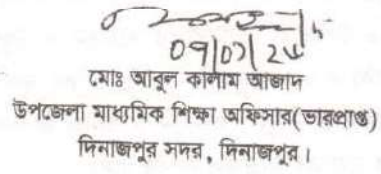 মোঃ আবুল কালাম আজাদ
উপজেলা মাধ্যমিক শিক্ষা অফিসার(ভারপ্রাপ্ত)
দিনাজপুর সদর, দিনাজপুর।